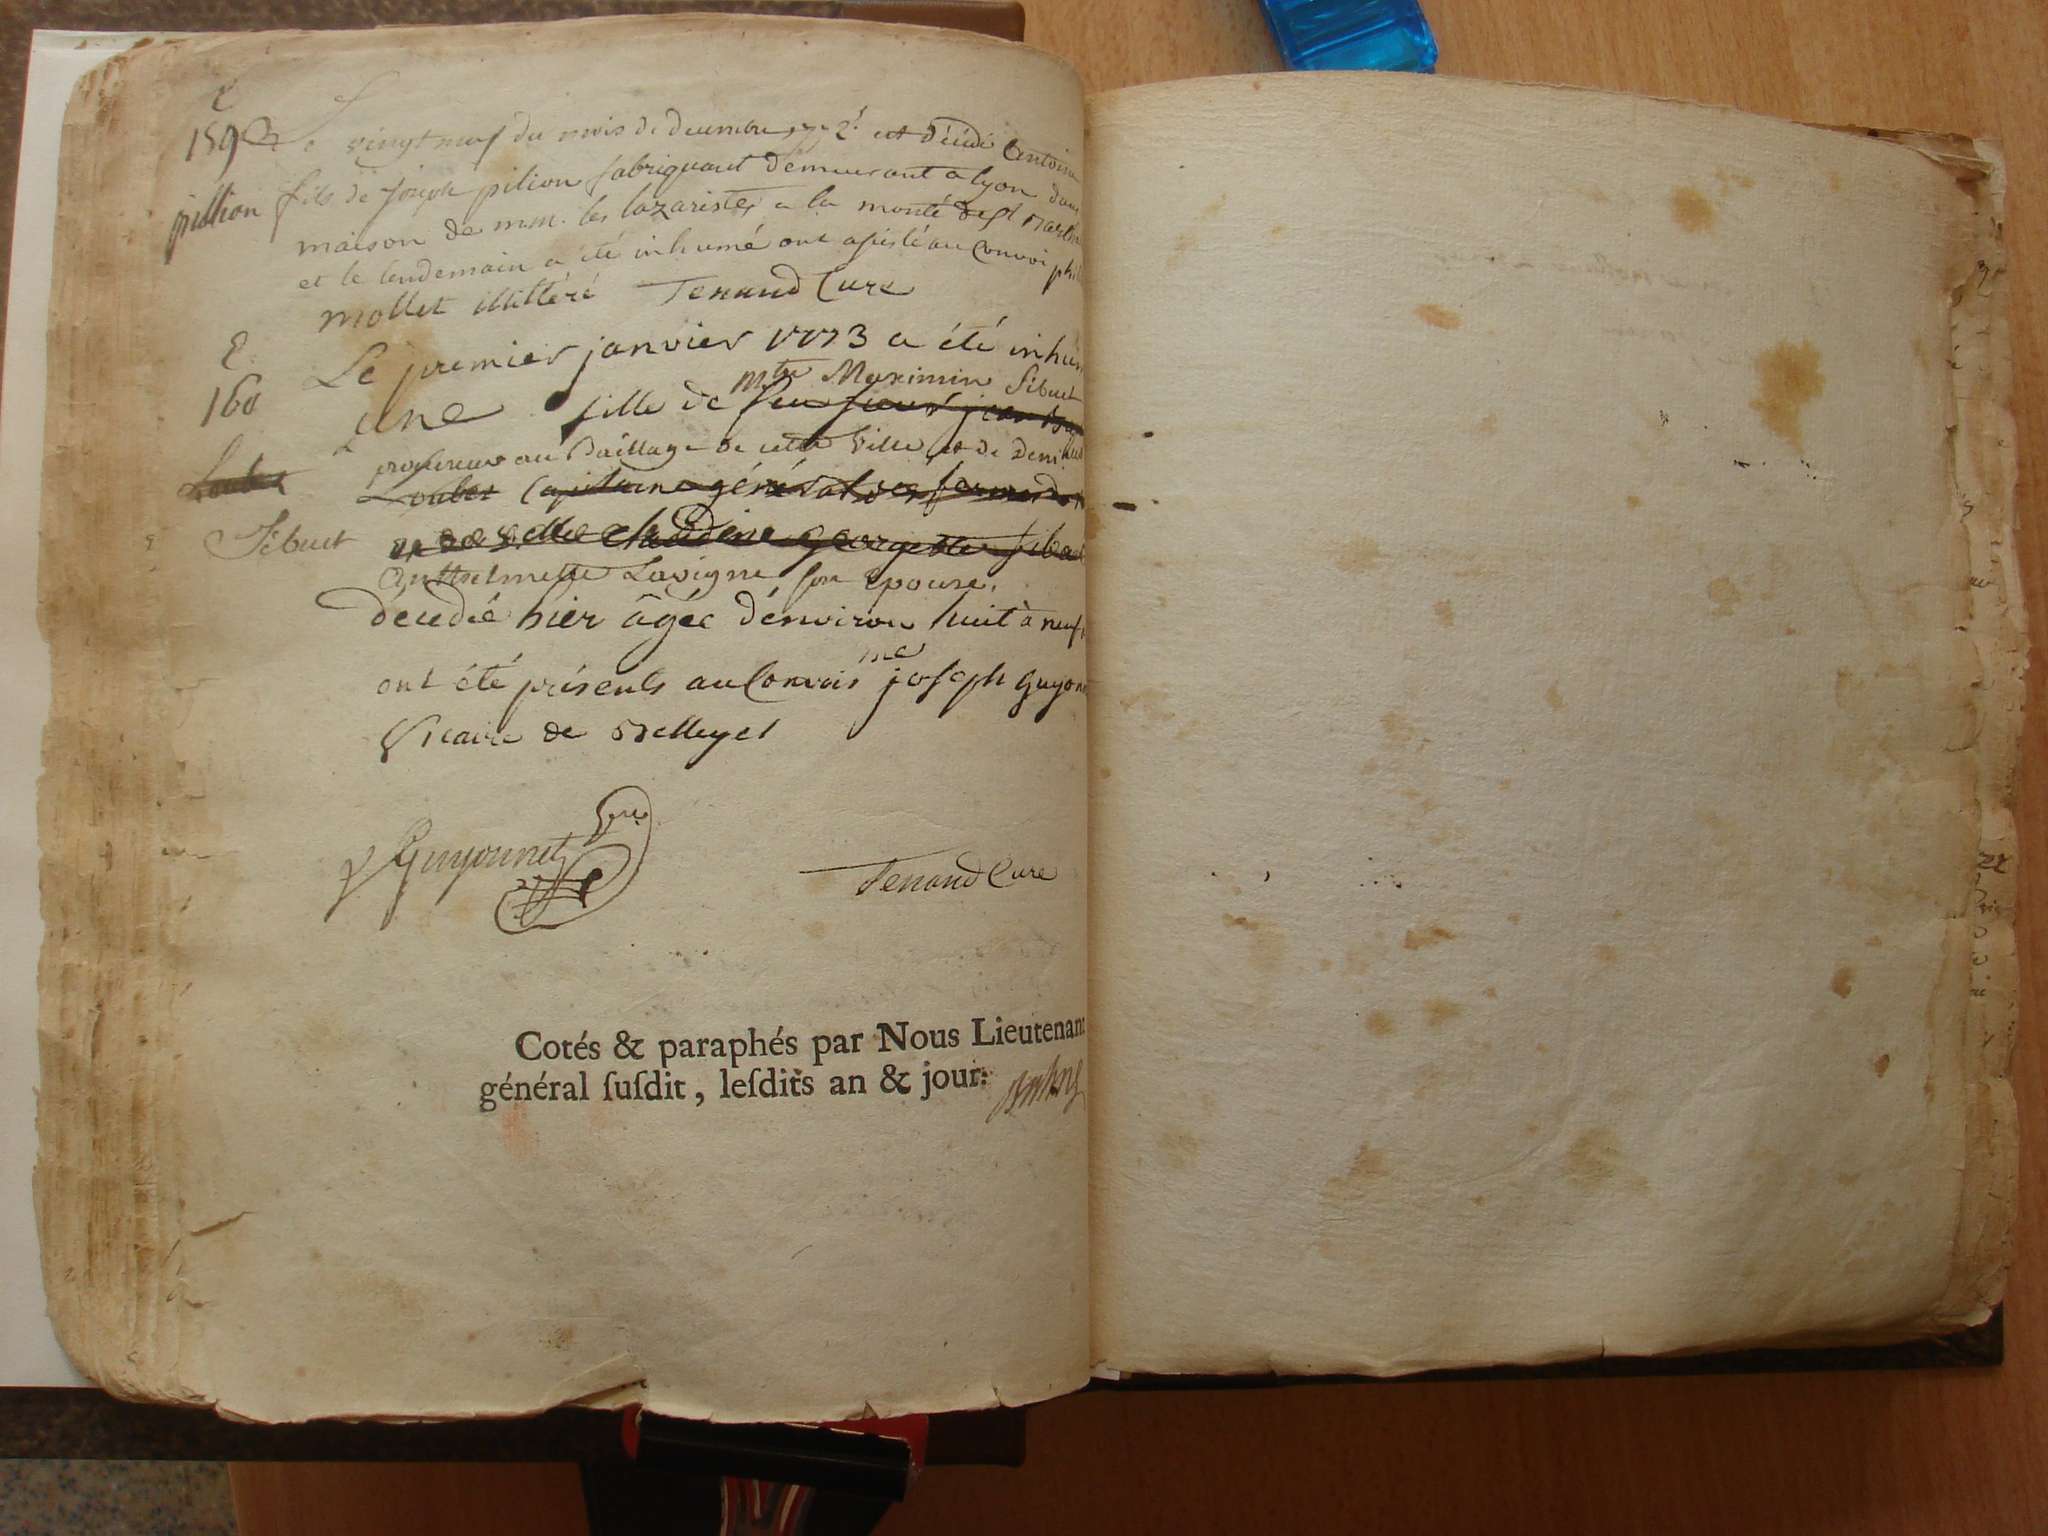 159
Le vingt neuf du mois de decembre est décédé Antoine
pillion fils de Joseph pilion fabriquant demeurant a lyon dans
maison de mm. les lazaristes a la monté de st
et le lendemain a été inhumé ont assisté au convoi
mollet illitéré Tenand Curé
160
Le premier janvier 1773 a été inhu
une fille de mtre Maximin Sibuet
procureur au Baillage de cette Ville et de
Loubet Loubet Capitaine général des fermes
Sibuet et de claudine georgette
Anthelmette Lavigne son epouse,
décédée hier âgée d'environ huit à neuf
ont été présents au Convoi me joseph guyon
Vicaire de
Guyonnet vre
Tenand Curé
Cotés & paraphés par Nous Lieutenan
général ſuſdit, leſdits an & jour.